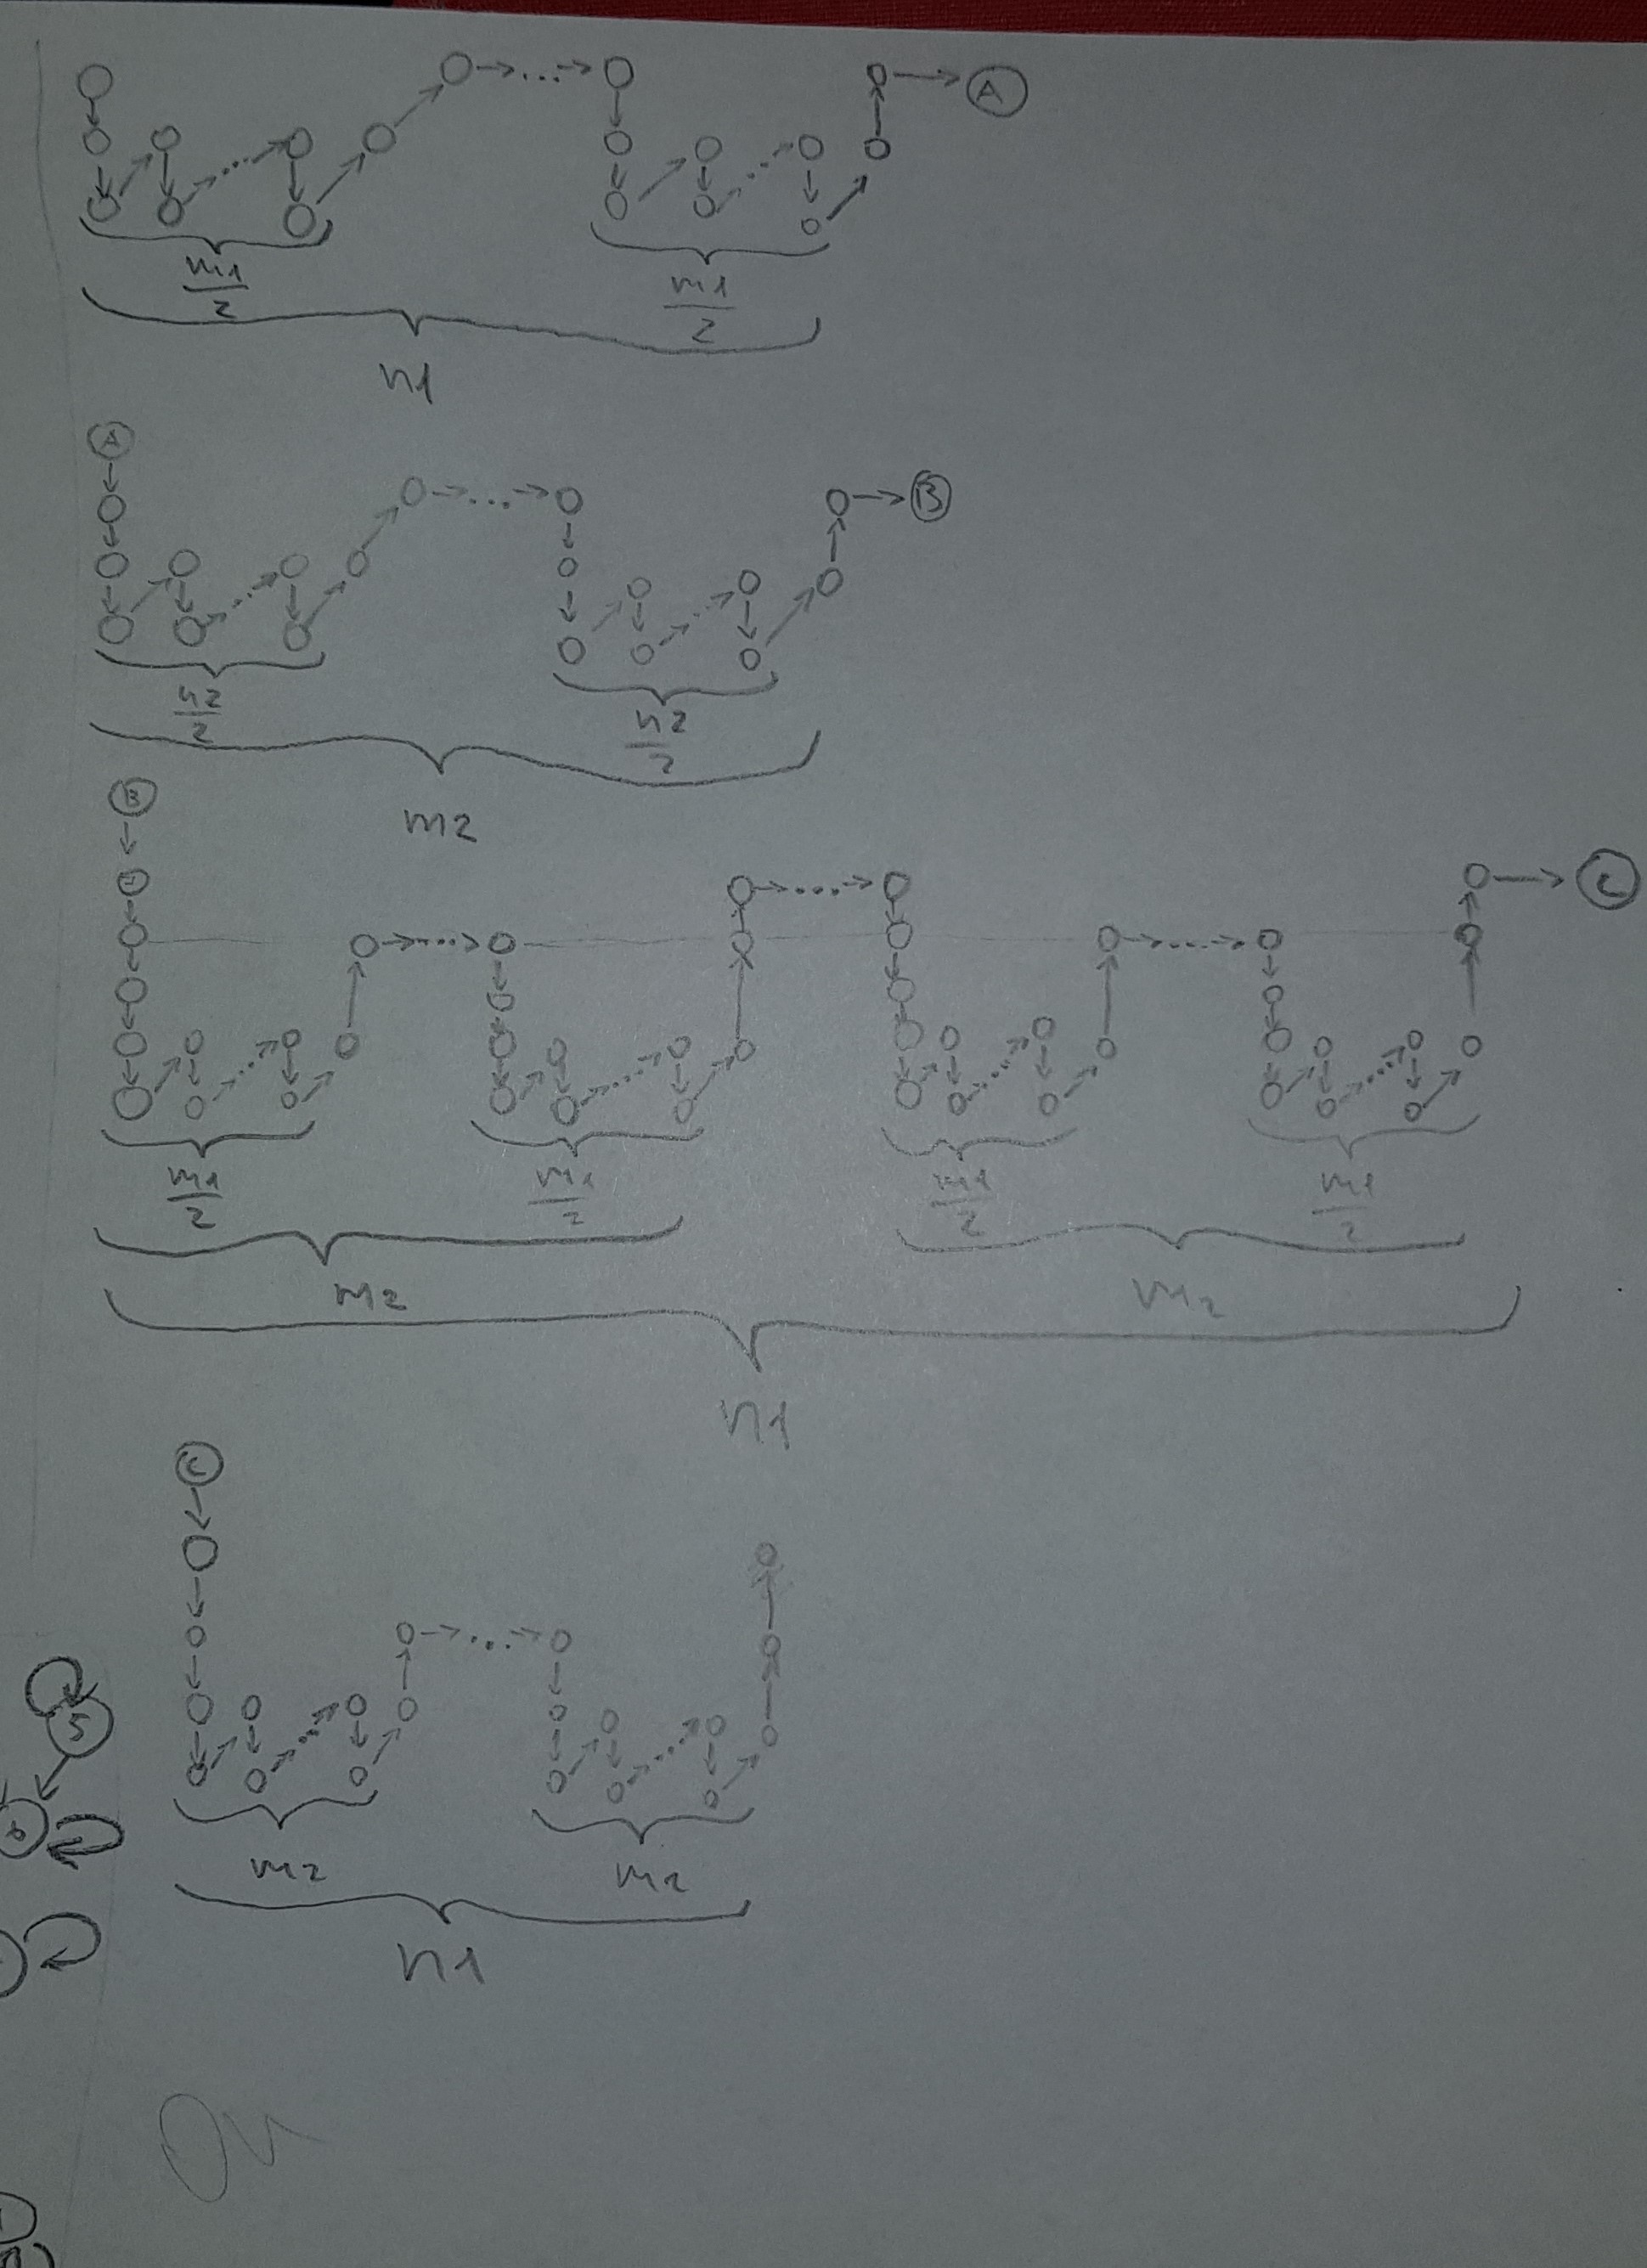 A
m1/2 m1/2
n1
A
B
n2/2 n2/2
m2
B
C
m1/2 m1/2 m1/2 m1/2
m2 m2
n1
C
5
6
m2 m2
n1